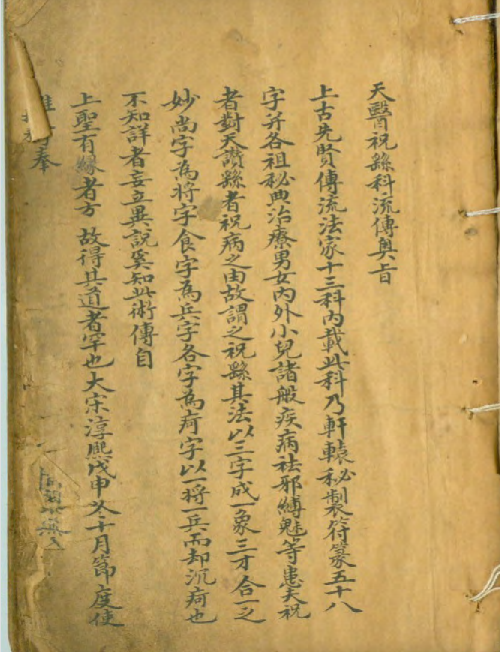 天醫祝繇科流傳奧旨
上古先賢傳流法家十三科內載此科乃軒轅秘製符篆五十八
字并各祖秘典治療男女內外小兒諸般疾病祛邪縛魅等患夫祝
者對天讚繇者祝病之由故謂之祝繇其法以三字成一象三才合一之
妙尚字為將字食字為兵字各字為疴字以一將一兵而却沉疴也
不知詳者妄立異說奚知此術傳自
上聖有緣者方 故得其道者罕也大宋淳熙戊申冬十月節度使
雒 奉